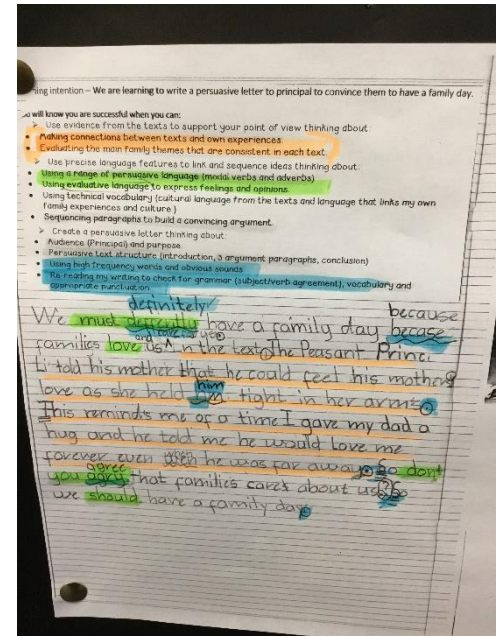 ning intention – We are learning to write a persuasive letter to principal to convince them to have a family day.
u will know you are successful when you can:
➤ Use evidence from the texts to support your point of view thinking about:
• Making connections between texts and own experiences
• Evaluating the main family themes that are consistent in each text.
➤ Use precise language features to link and sequence ideas thinking about:
• Using a range of persuasive language (modal verbs and adverbs)
• Using evaluative language to express feelings and opinions.
• Using technical vocabulary (cultural language from the texts and language that links my own
family experiences and culture )
• Sequencing paragraphs to build a convincing argument.
➤ Create a persuasive letter thinking about:
• Audience (Principal) and purpose
• Persuasive text structure (introduction, 3 argument paragraphs, conclusion)
• Using high frequency words and obvious sounds
• Re-reading my writing to check for grammar (subject/verb agreement), vocabulary and
appropriate punctuation.
definitely because
We must have a family day becase
families love us In the text The Peasant Princ
Li told his mother that he could feel his mothers
him
love as she held tight in her arms.
This reminds me of a time I gave my dad a
hug and he told me he would love me
forever even when he was far away. So dont
agree
you that families care about us? So
we should have a family day.